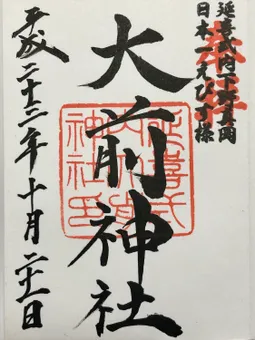 奉拝
延喜式内下野真岡
日本一えびす様
大前神社
延喜式
内大前
神社印
平成二十三年十月二十一日